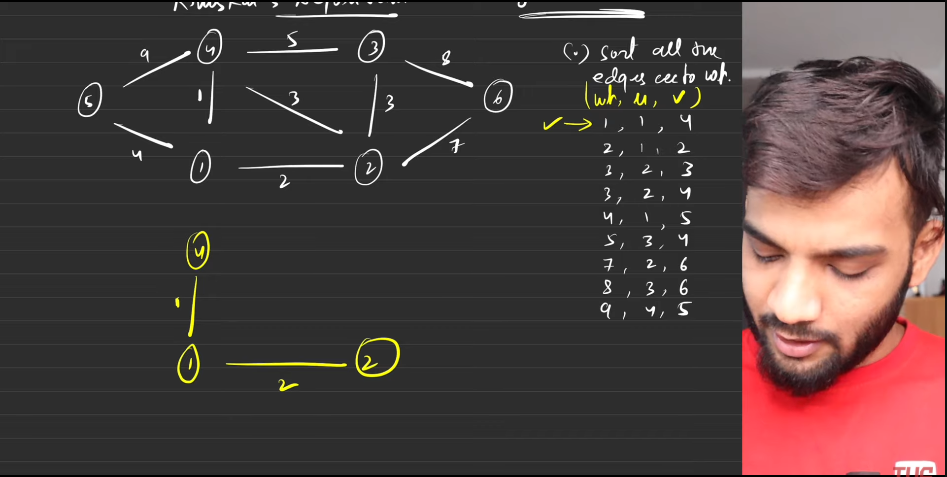 9
4
5
3
8
5
1
3
3
6
4
1
2
2
7
(.) sort all the
edges acc to wt.
(wt, u, v)
✓→ 1, 1, 4
2, 1, 2
3, 2, 3
3, 2, 4
4, 1, 5
5, 3, 4
7, 2, 6
8, 3, 6
9, 4, 5
4
1
1
2
2